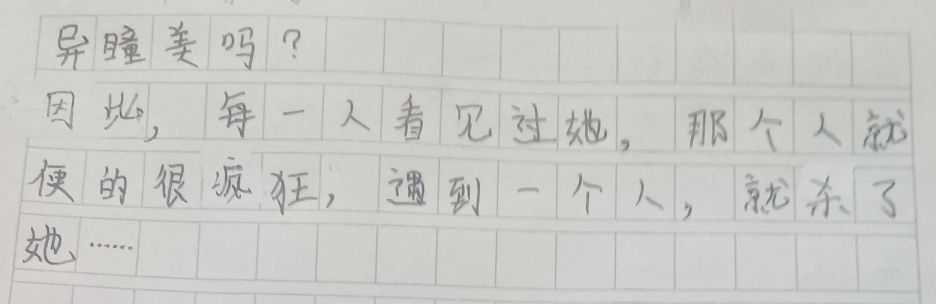 异瞳美吗?
因此,每一人看见过她,那个人就
便的很疯狂,遇到一个人,就杀了
她……